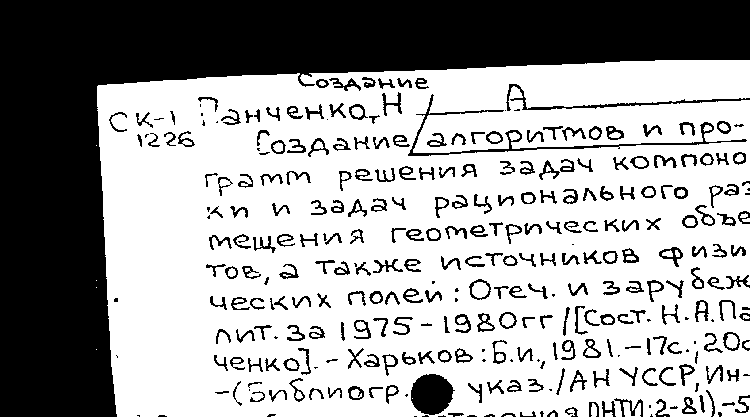 Создание
СК-1 Панченко, Н А
1226 Создание алгоритмов и про-
грамм решения задач компоно
ки и задач рационального раз
мещения геометрических объе
тов, а также источников физи
ческих полей: Отеч. и зарубеж
лит. за 1975-1980гг /[Сост. Н.А.Па
ченко]. - Харьков: Б.и., 1981. - 17с.; 20с
-(Библиогр. указ./АН УССР, Ин-
ДНТИ: 2-81).-5